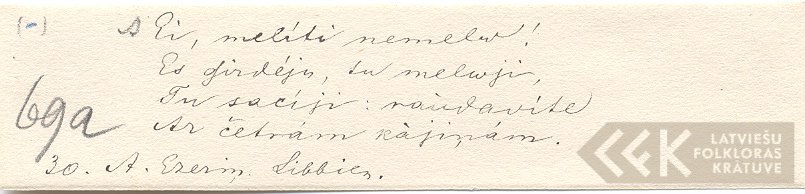 (-) s Ei, melīti nemelw!
Es girdēju, tu melwji,
Tu sacīji: raūdavīte
69a Ar četrām kājiņām.
30. A. Ezeriņ. Libbien.
LATVIEŠU
FOLKLORAS
KRĀTUVE